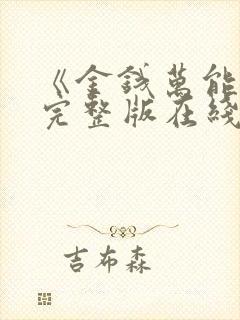 《金錢萬能
完整版在綫
吉布森